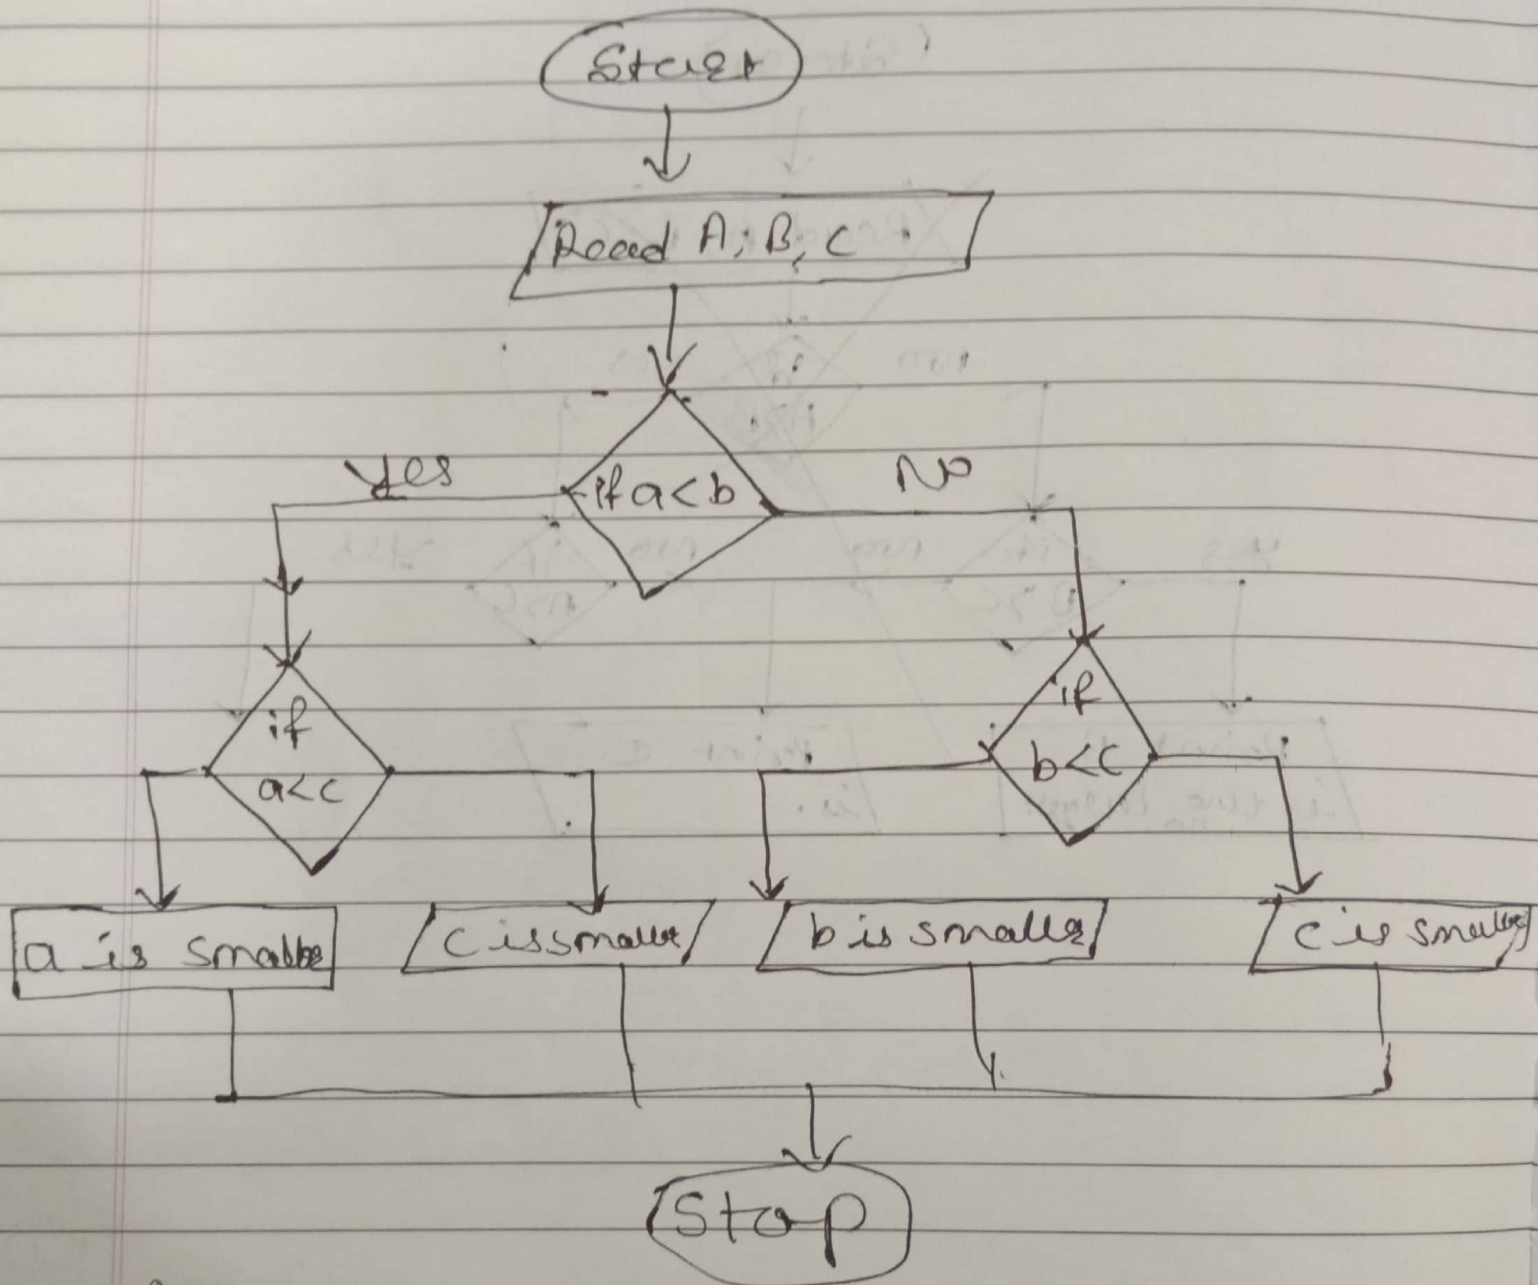 Start
Read A, B, C
Yes
if a<b
No
if
a<c
if
b<c
a is smaller
c is smaller
b is smaller
c is smaller
Stop